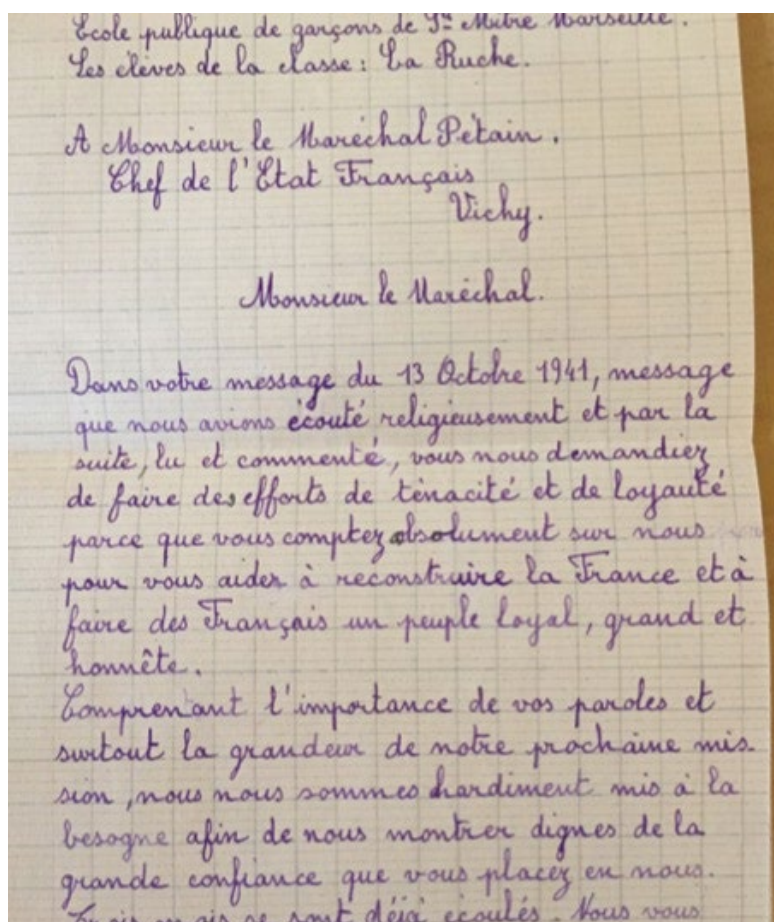 Ecole publique de garçons de St Mitre Marseille.
Les élèves de la classe : La Ruche.
A Monsieur le Maréchal Pétain.
Chef de l'Etat Français
Vichy.
Monsieur le Maréchal.
Dans votre message du 13 Octobre 1941, message
que nous avions écouté religieusement et par la
suite, lu et commenté, vous nous demandiez
de faire des efforts de ténacité et de loyauté
parce que vous comptez absolument sur nous
pour vous aider à reconstruire la France et à
faire des Français un peuple loyal, grand et
honnête.
Comprenant l'importance de vos paroles et
surtout la grandeur de notre prochaine mis-
sion, nous nous sommes hardiment mis à la
besogne afin de nous montrer dignes de la
grande confiance que vous placez en nous.
Trois mois se sont déjà écoulés. Nous vous